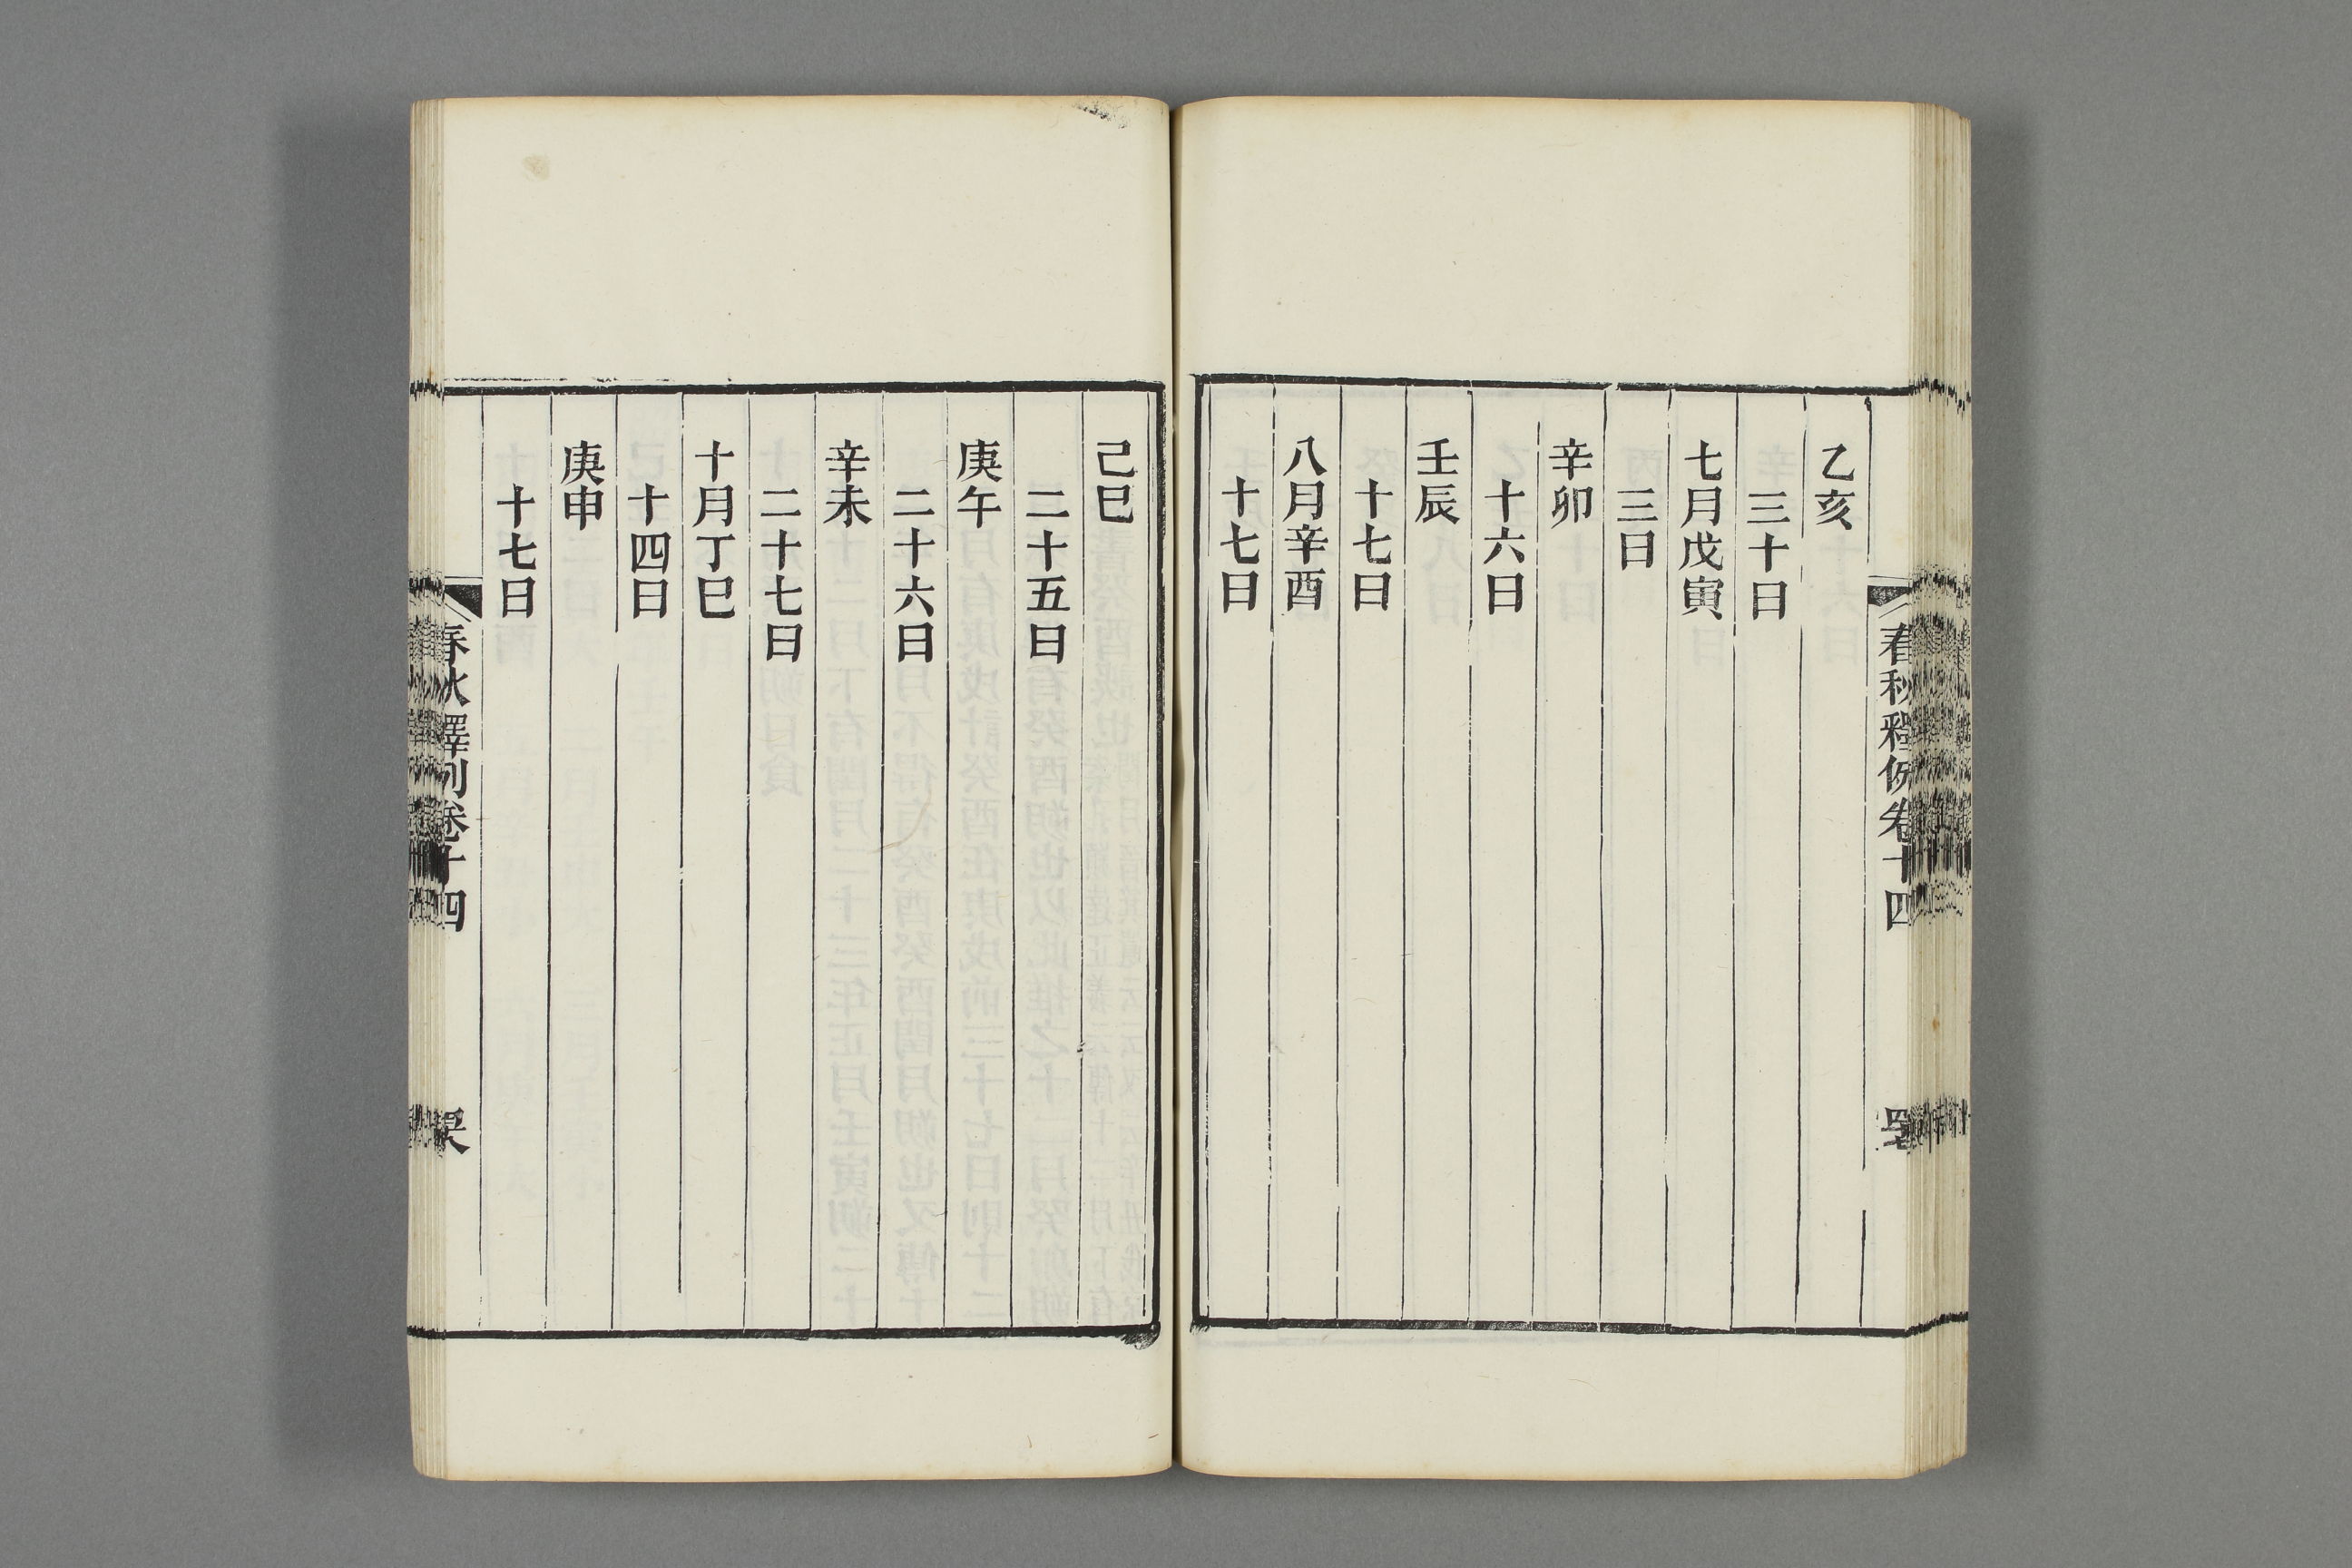 乙亥
三十日
七月戊寅
三日
辛卯
十六日
壬辰
十七日
八月辛酉
十七日
己巳
二十五日
庚午
二十六日
辛未
二十七日
十月丁巳
十四日
庚申
十七日
春秋釋例卷十四
春秋釋例卷十四